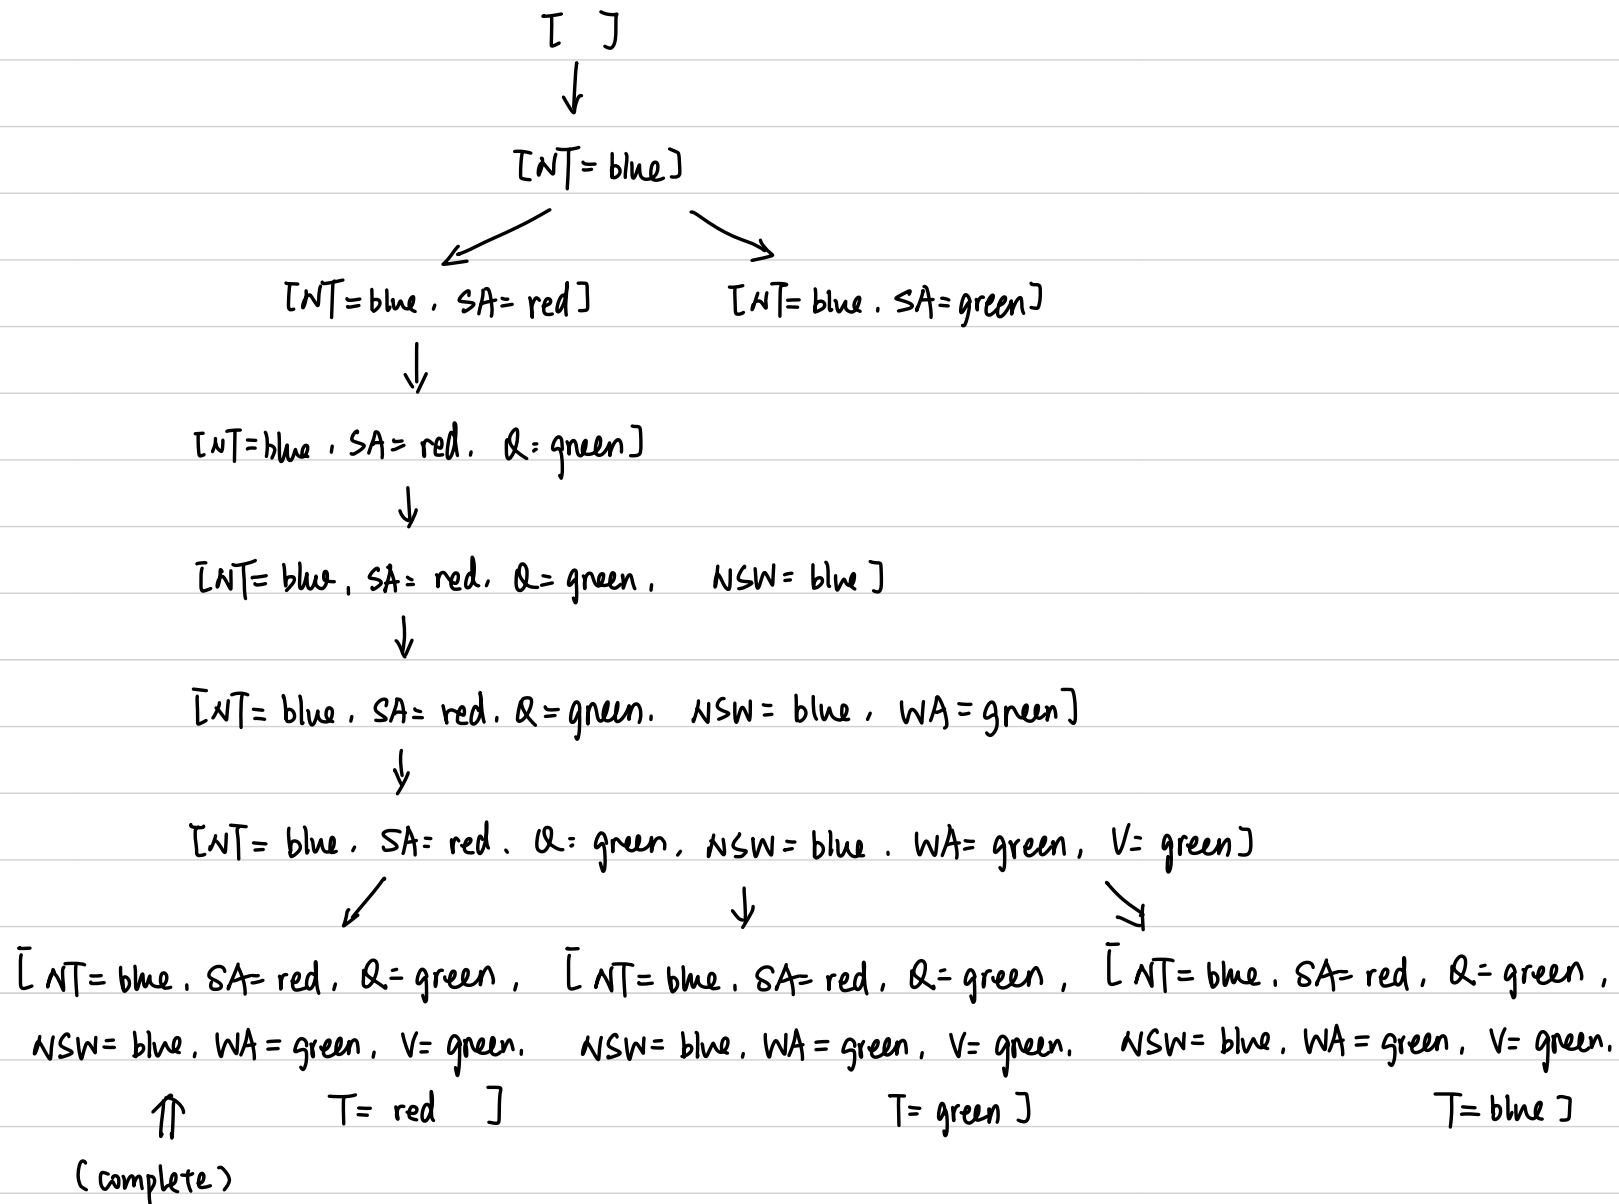 [ ]
[NT=blue]
[NT=blue, SA=red] [NT=blue, SA=green]
[NT=blue, SA=red, Q=green]
[NT=blue, SA=red, Q=green, NSW=blue]
[NT=blue, SA=red, Q=green, NSW=blue, WA=green]
[NT=blue, SA=red, Q=green, NSW=blue, WA=green, V=green]
[NT=blue, SA=red, Q=green, [NT=blue, SA=red, Q=green, [NT=blue, SA=red, Q=green,
NSW=blue, WA=green, V=green, NSW=blue, WA=green, V=green, NSW=blue, WA=green, V=green,
T=red ] T=green] T=blue]
(complete)